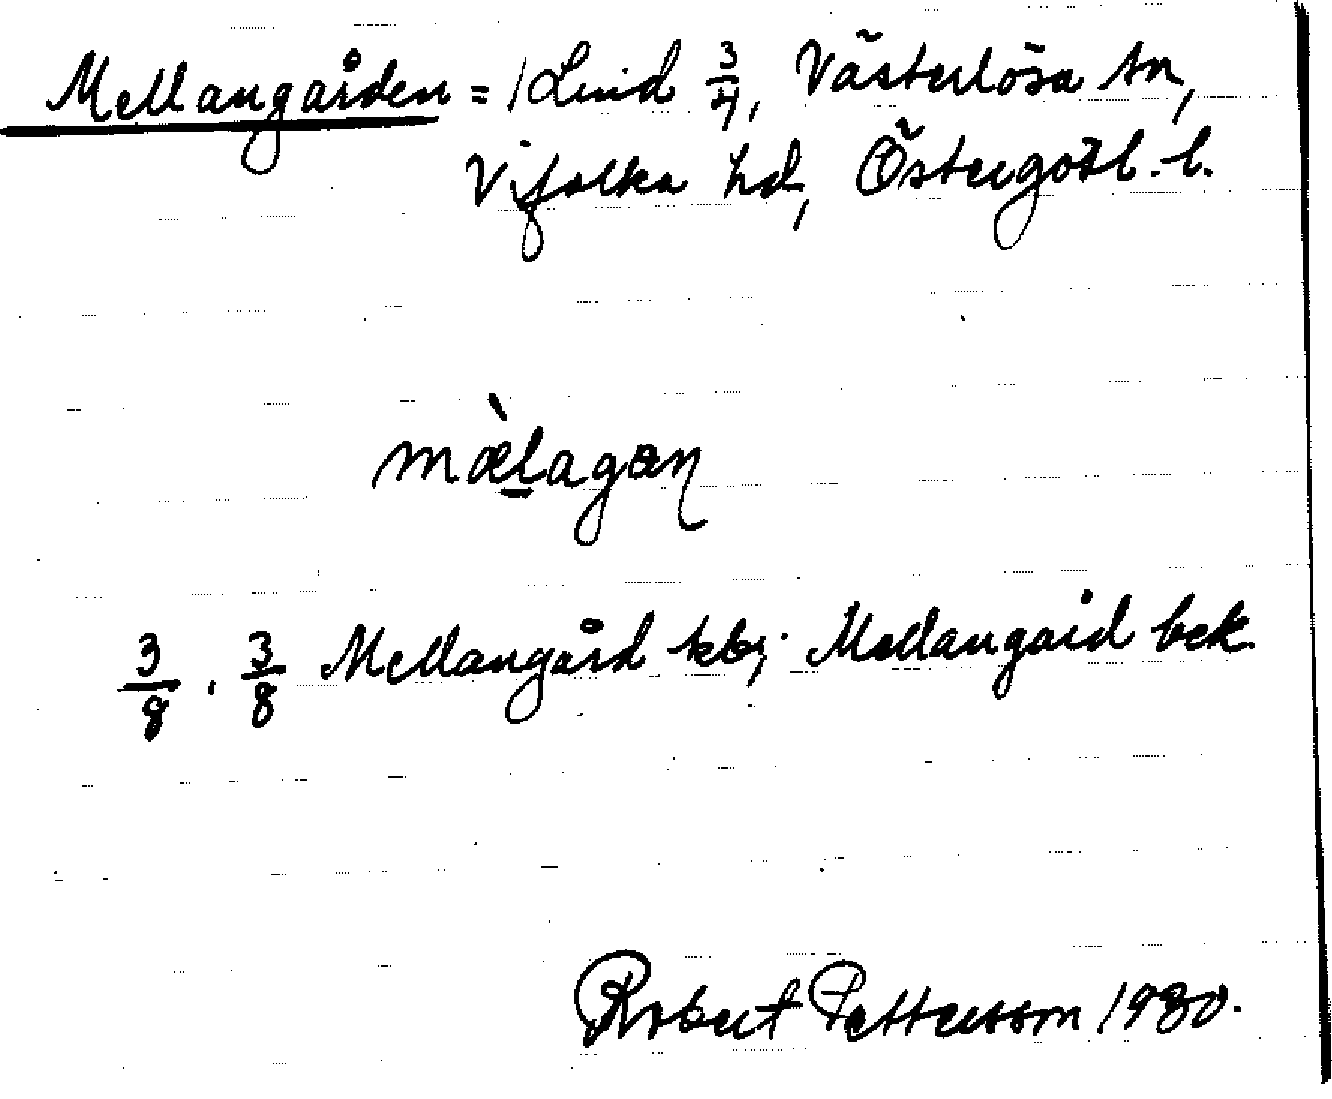 Mellangården = 1 Lund 3/4, Västerlösa sn,
Vifolka hd, Östergötl. l.
mæ̀lagan
3/8 . 3/8 Mellangård kbr; Mellangård bek.
Robert Pettersson 1930.